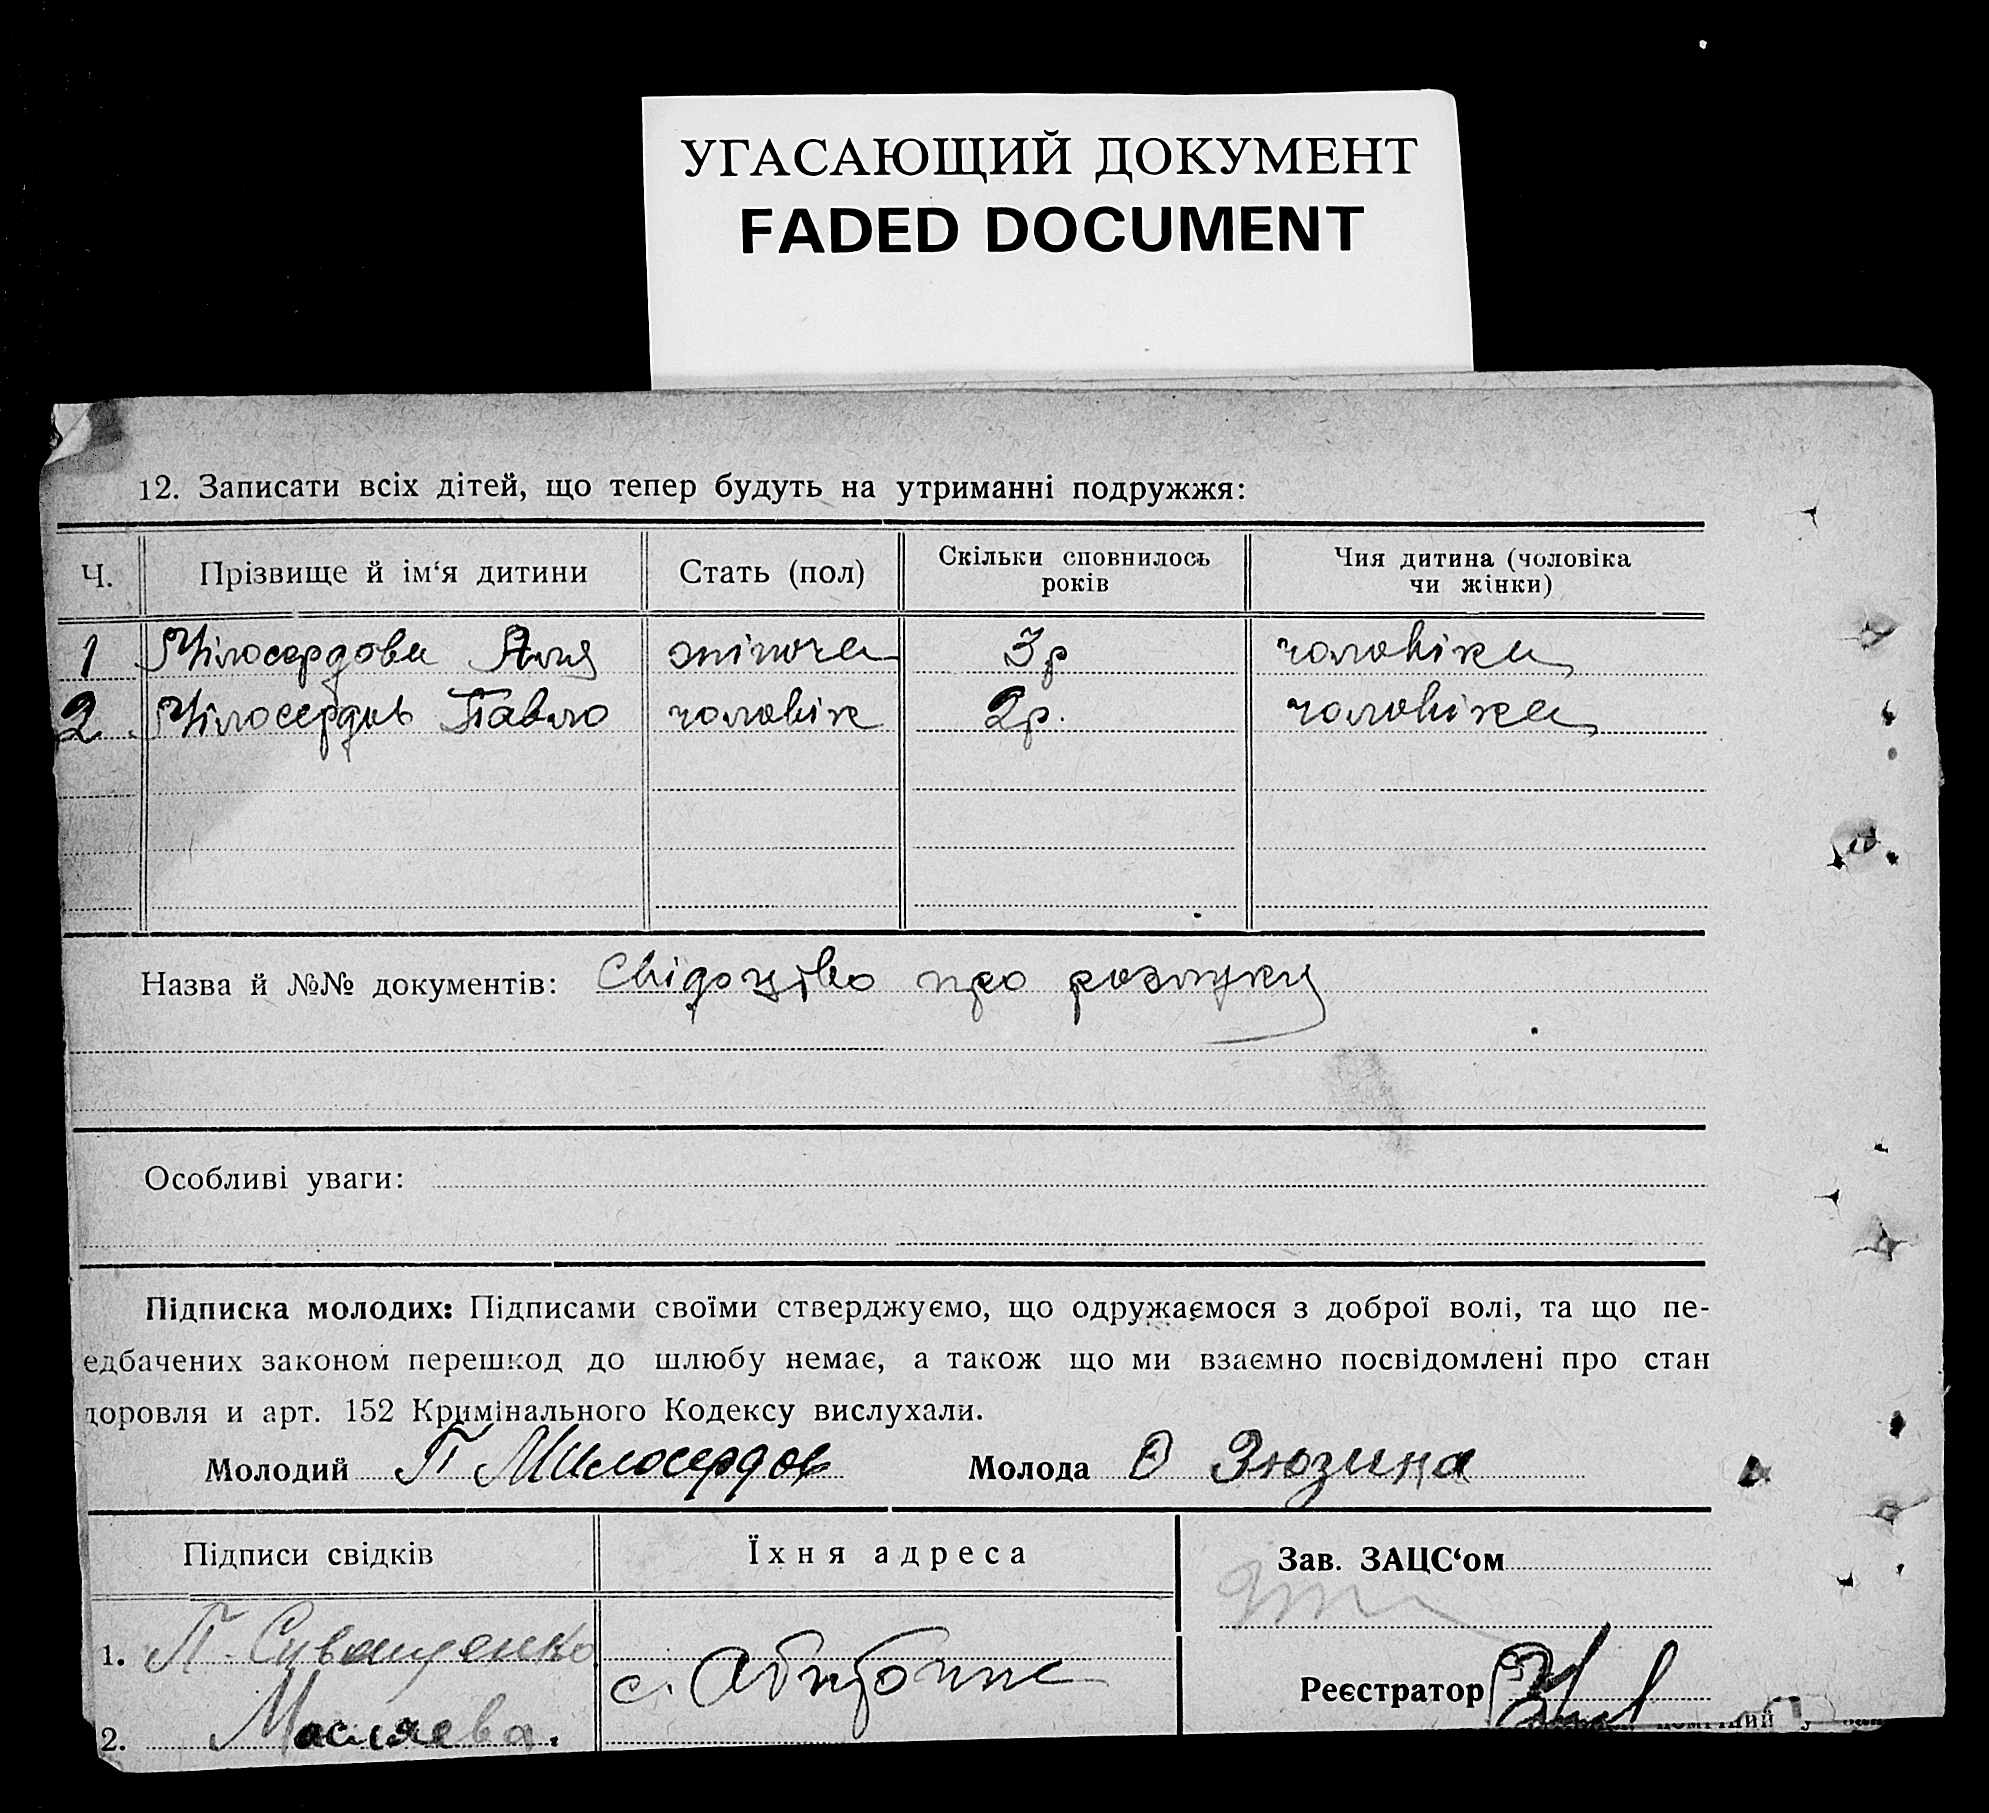 УГАСАЮЩИЙ ДОКУМЕНТ
FADED DOCUMENT
12. Записати всіх дітей, що тепер будуть на утриманні подружжя:
Ч. Прізвище й ім‘я дитини Стать (пол) Скільки сповнилось років Чия дитина (чоловіка чи жінки)
1 Мілосердова Аля жіноча 3р чоловіка
2. Мілосердов Павло чоловік 2р. чоловіка
Назва й №№ документів: Свідоцтво про розлуку
Особливі уваги:
Підписка молодих: Підписами своїми стверджуємо, що одружаємося з доброї волі, та що пе-
едбачених законом перешкод до шлюбу немає, а також що ми взаємно посвідомлені про стан
доровля и арт. 152 Кримінального Кодексу вислухали.
Молодий П Милосердов Молода О Зюзина
Підписи свідків Їхня адреса Зав. ЗАЦС‘ом
1. П. Сиващенко с.
Реєстратор
2. Масляева.